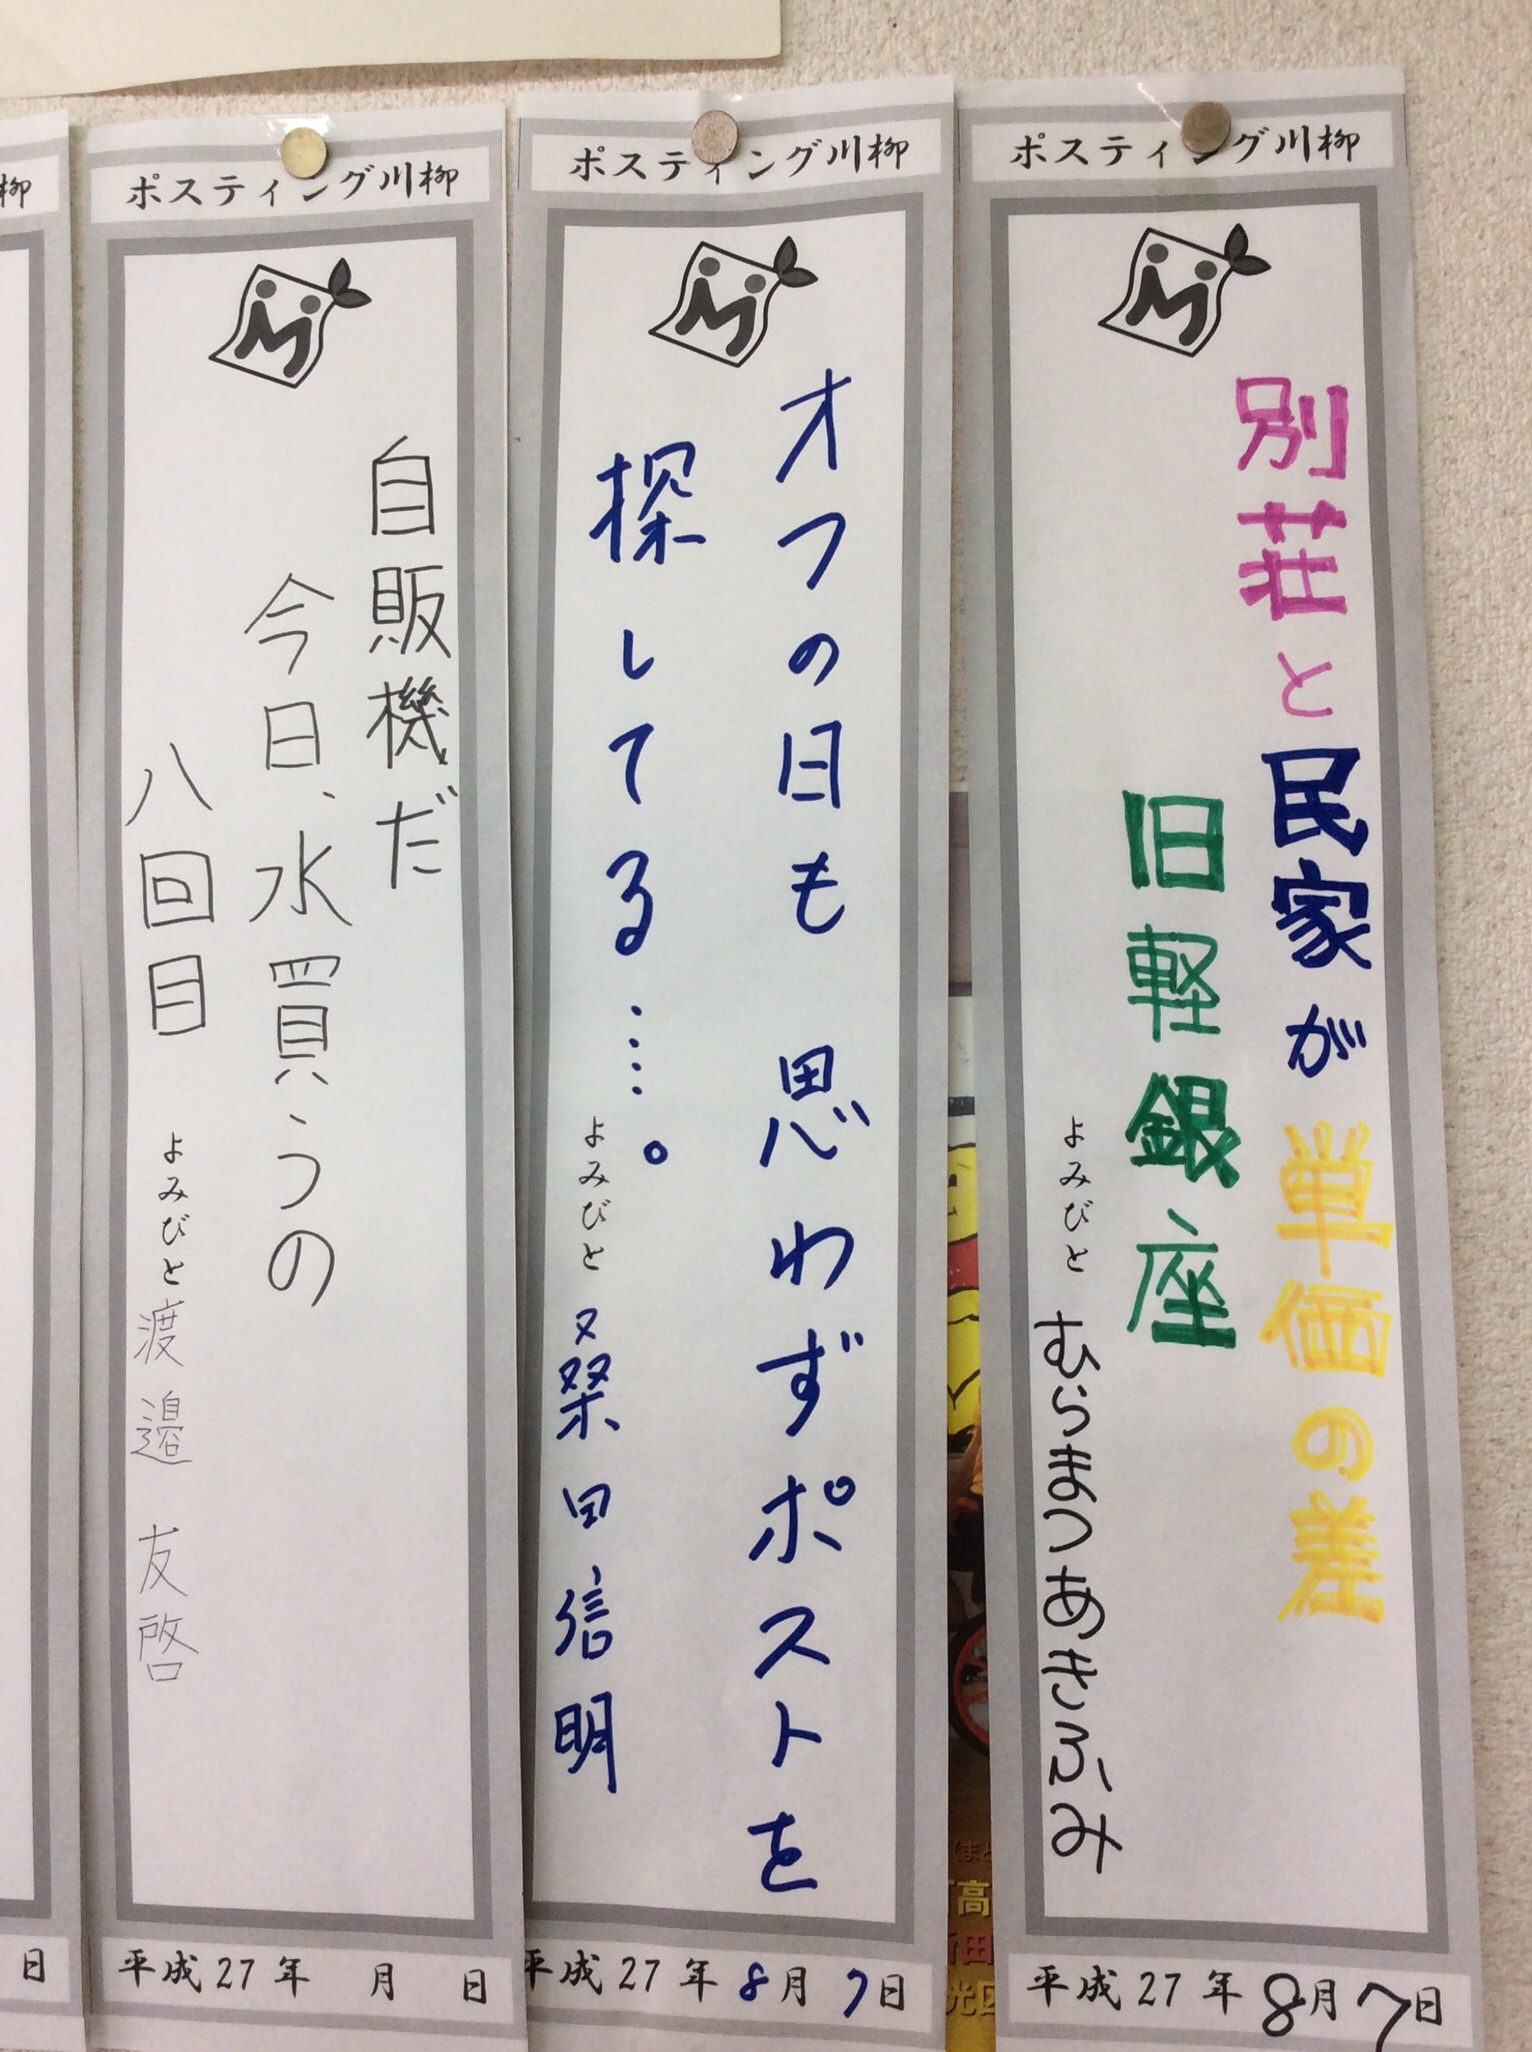 ポスティング川柳
別荘と民家が単価の差
旧軽銀座
よみびと むらまつあきふみ
平成27年8月7日
ポスティング川柳
オフの日も 思わずポストを
探してる……。
よみびと 桑田信明
平成27年8月7日
ポスティング川柳
自販機だ
今日、水買うの
八回目
よみびと 渡邉 友啓
平成27年 月 日
柳
日
高
田